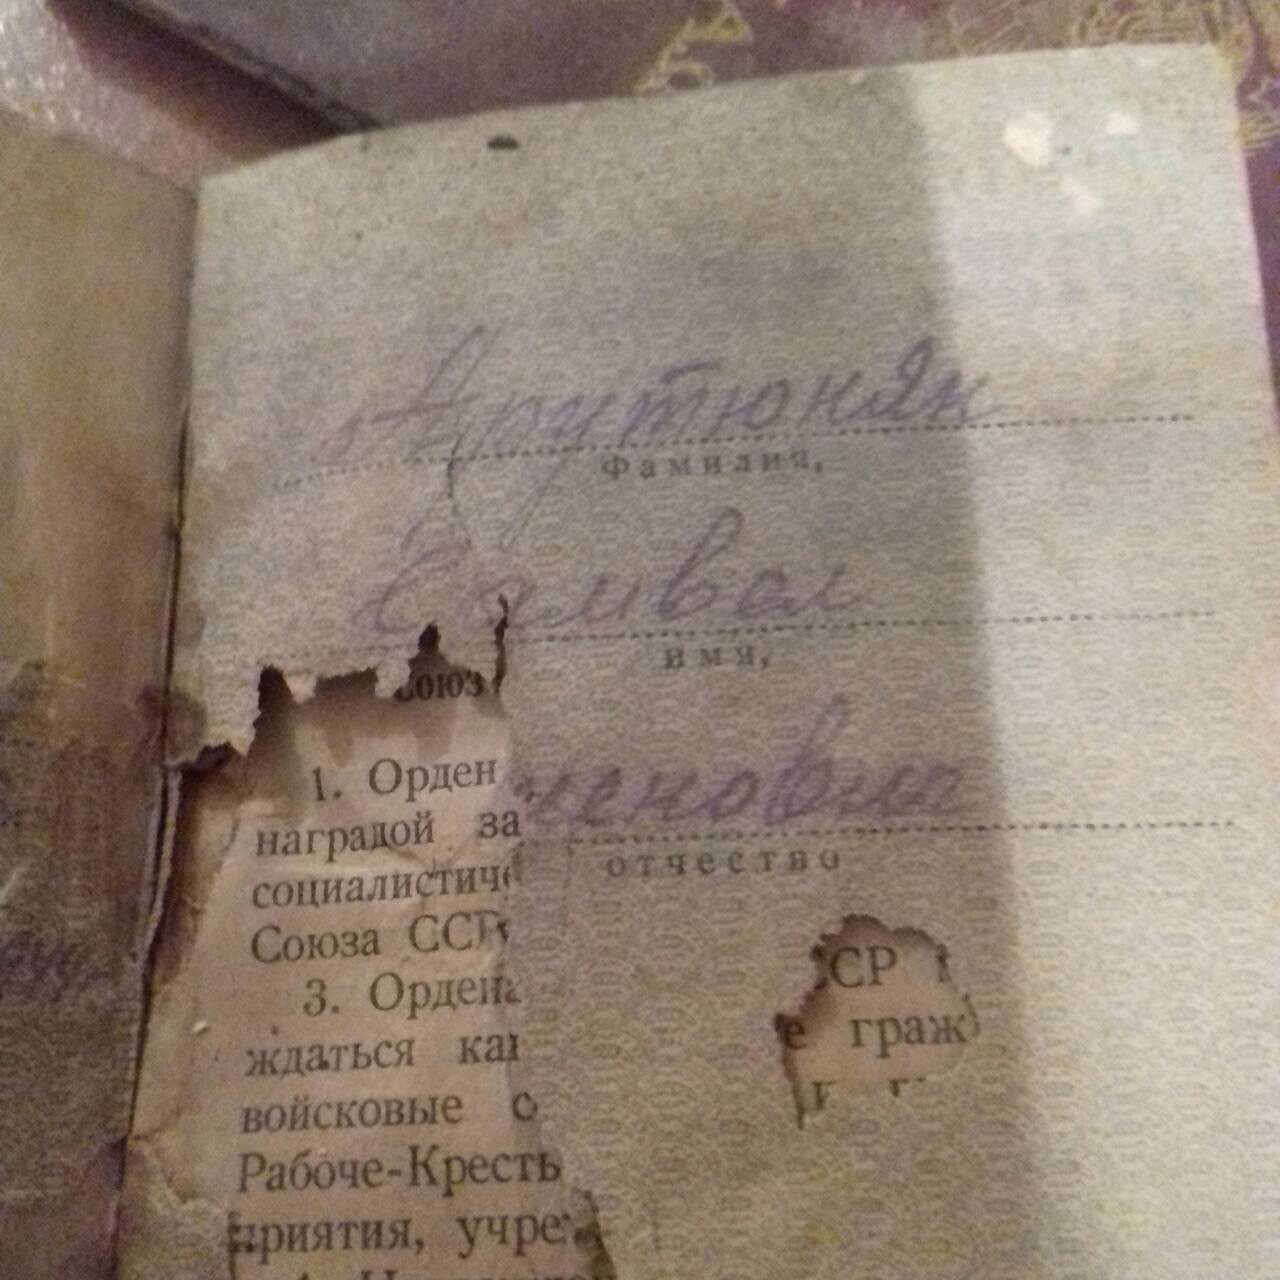 Арутюнян
Фамилия,
Самвел
имя,
менович
отчество
союз
1. Орден
наградой за
социалистиче
Союза ССР
3. Ордена
ждаться ка
войсковые с
Рабоче-Кресть
приятия, учре
ССР
е граж